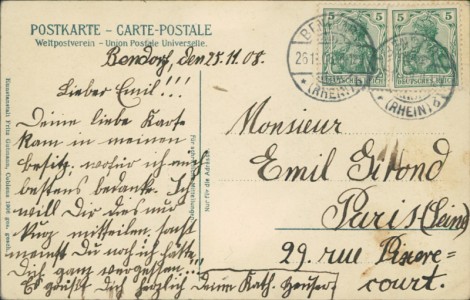 POSTKARTE - CARTE-POSTALE
Weltpostverein - Union Postale Universelle.
Bendorf, den 25.11.08.
Lieber Emil!!!
Deine liebe Karte
kam in meinen
besitz, wofür ich mich
bestens bedanke. Ich
will Dir dies nur
kurz mitteilen, sonst
meinst Du noch ich hätte
Dich ganz vergessen...!
Es grüßt Dich herzlich Deine Kath.
Für
Nur für die Adresse.
Kunstanstalt Fritz Gutmann, Coblenz 1906 ges. gesch.
5 5
DEUTSCHES REICH
DEUTSCHES REICH
BENDORF
26.11.
* (RHEIN) b
(RHEIN) b
Monsieur
Emil Girond
Paris (Seine)
29. rue Pixere-
court.